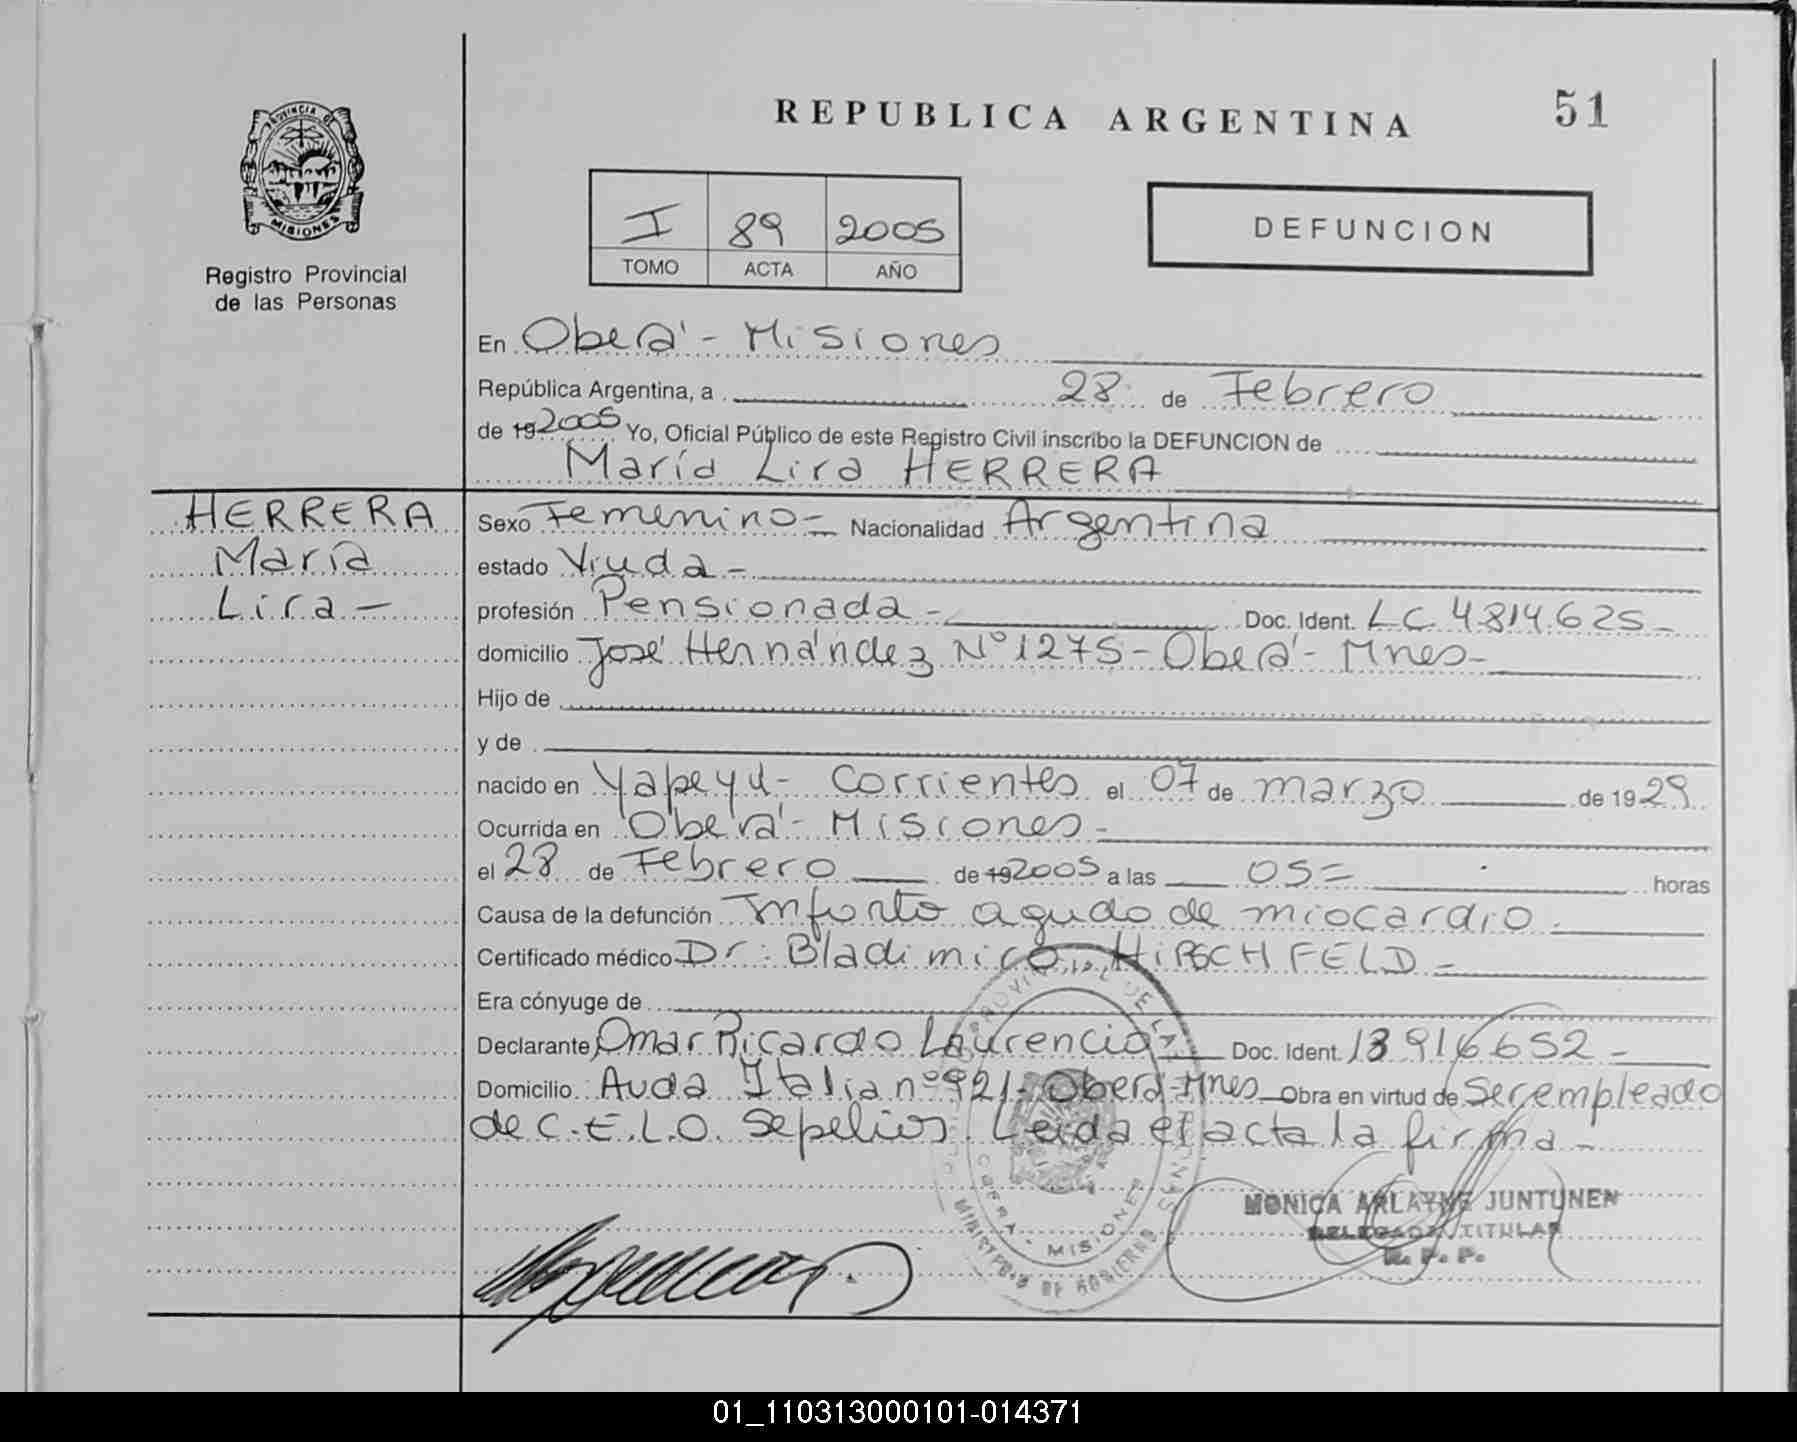 REPUBLICA ARGENTINA
51
PROVINCIA DE
MISIONES
Registro Provincial
de las Personas
I 89 2005
TOMO ACTA AÑO
DEFUNCION
En Oberá - Misiones
República Argentina, a 28 de Febrero
de 192005 Yo, Oficial Público de este Registro Civil inscribo la DEFUNCION de
María Lira HERRERA
HERRERA
María
Lira -
Sexo Femenino - Nacionalidad Argentina
estado Viuda -
profesión Pensionada - Doc. Ident. LC 4814625 -
domicilio José Hernández Nº 1275 - Oberá - Mnes -
Hijo de
y de
nacido en Yapeyú - Corrientes el 07 de marzo de 1929
Ocurrida en Oberá - Misiones -
el 28 de Febrero de 192005 a las 05= horas
Causa de la defunción Infarto agudo de miocardio.
Certificado médico Dr: Bladimiro HIRSCHFELD -
Era cónyuge de
Declarante Omar Ricardo Laurencio - Doc. Ident. 13916652 -
Domicilio Avda Italia nº 921 - Oberá - Mnes Obra en virtud de Ser empleado
de C.E.L.O. Sepelios. Leída el acta la firma -
MONICA ARLAYNE JUNTUNEN
DELEGADA TITULAR
R. P. P.
OBERA - MISIONES
MINISTERIO DE GOBIERNO
01_110313000101-014371